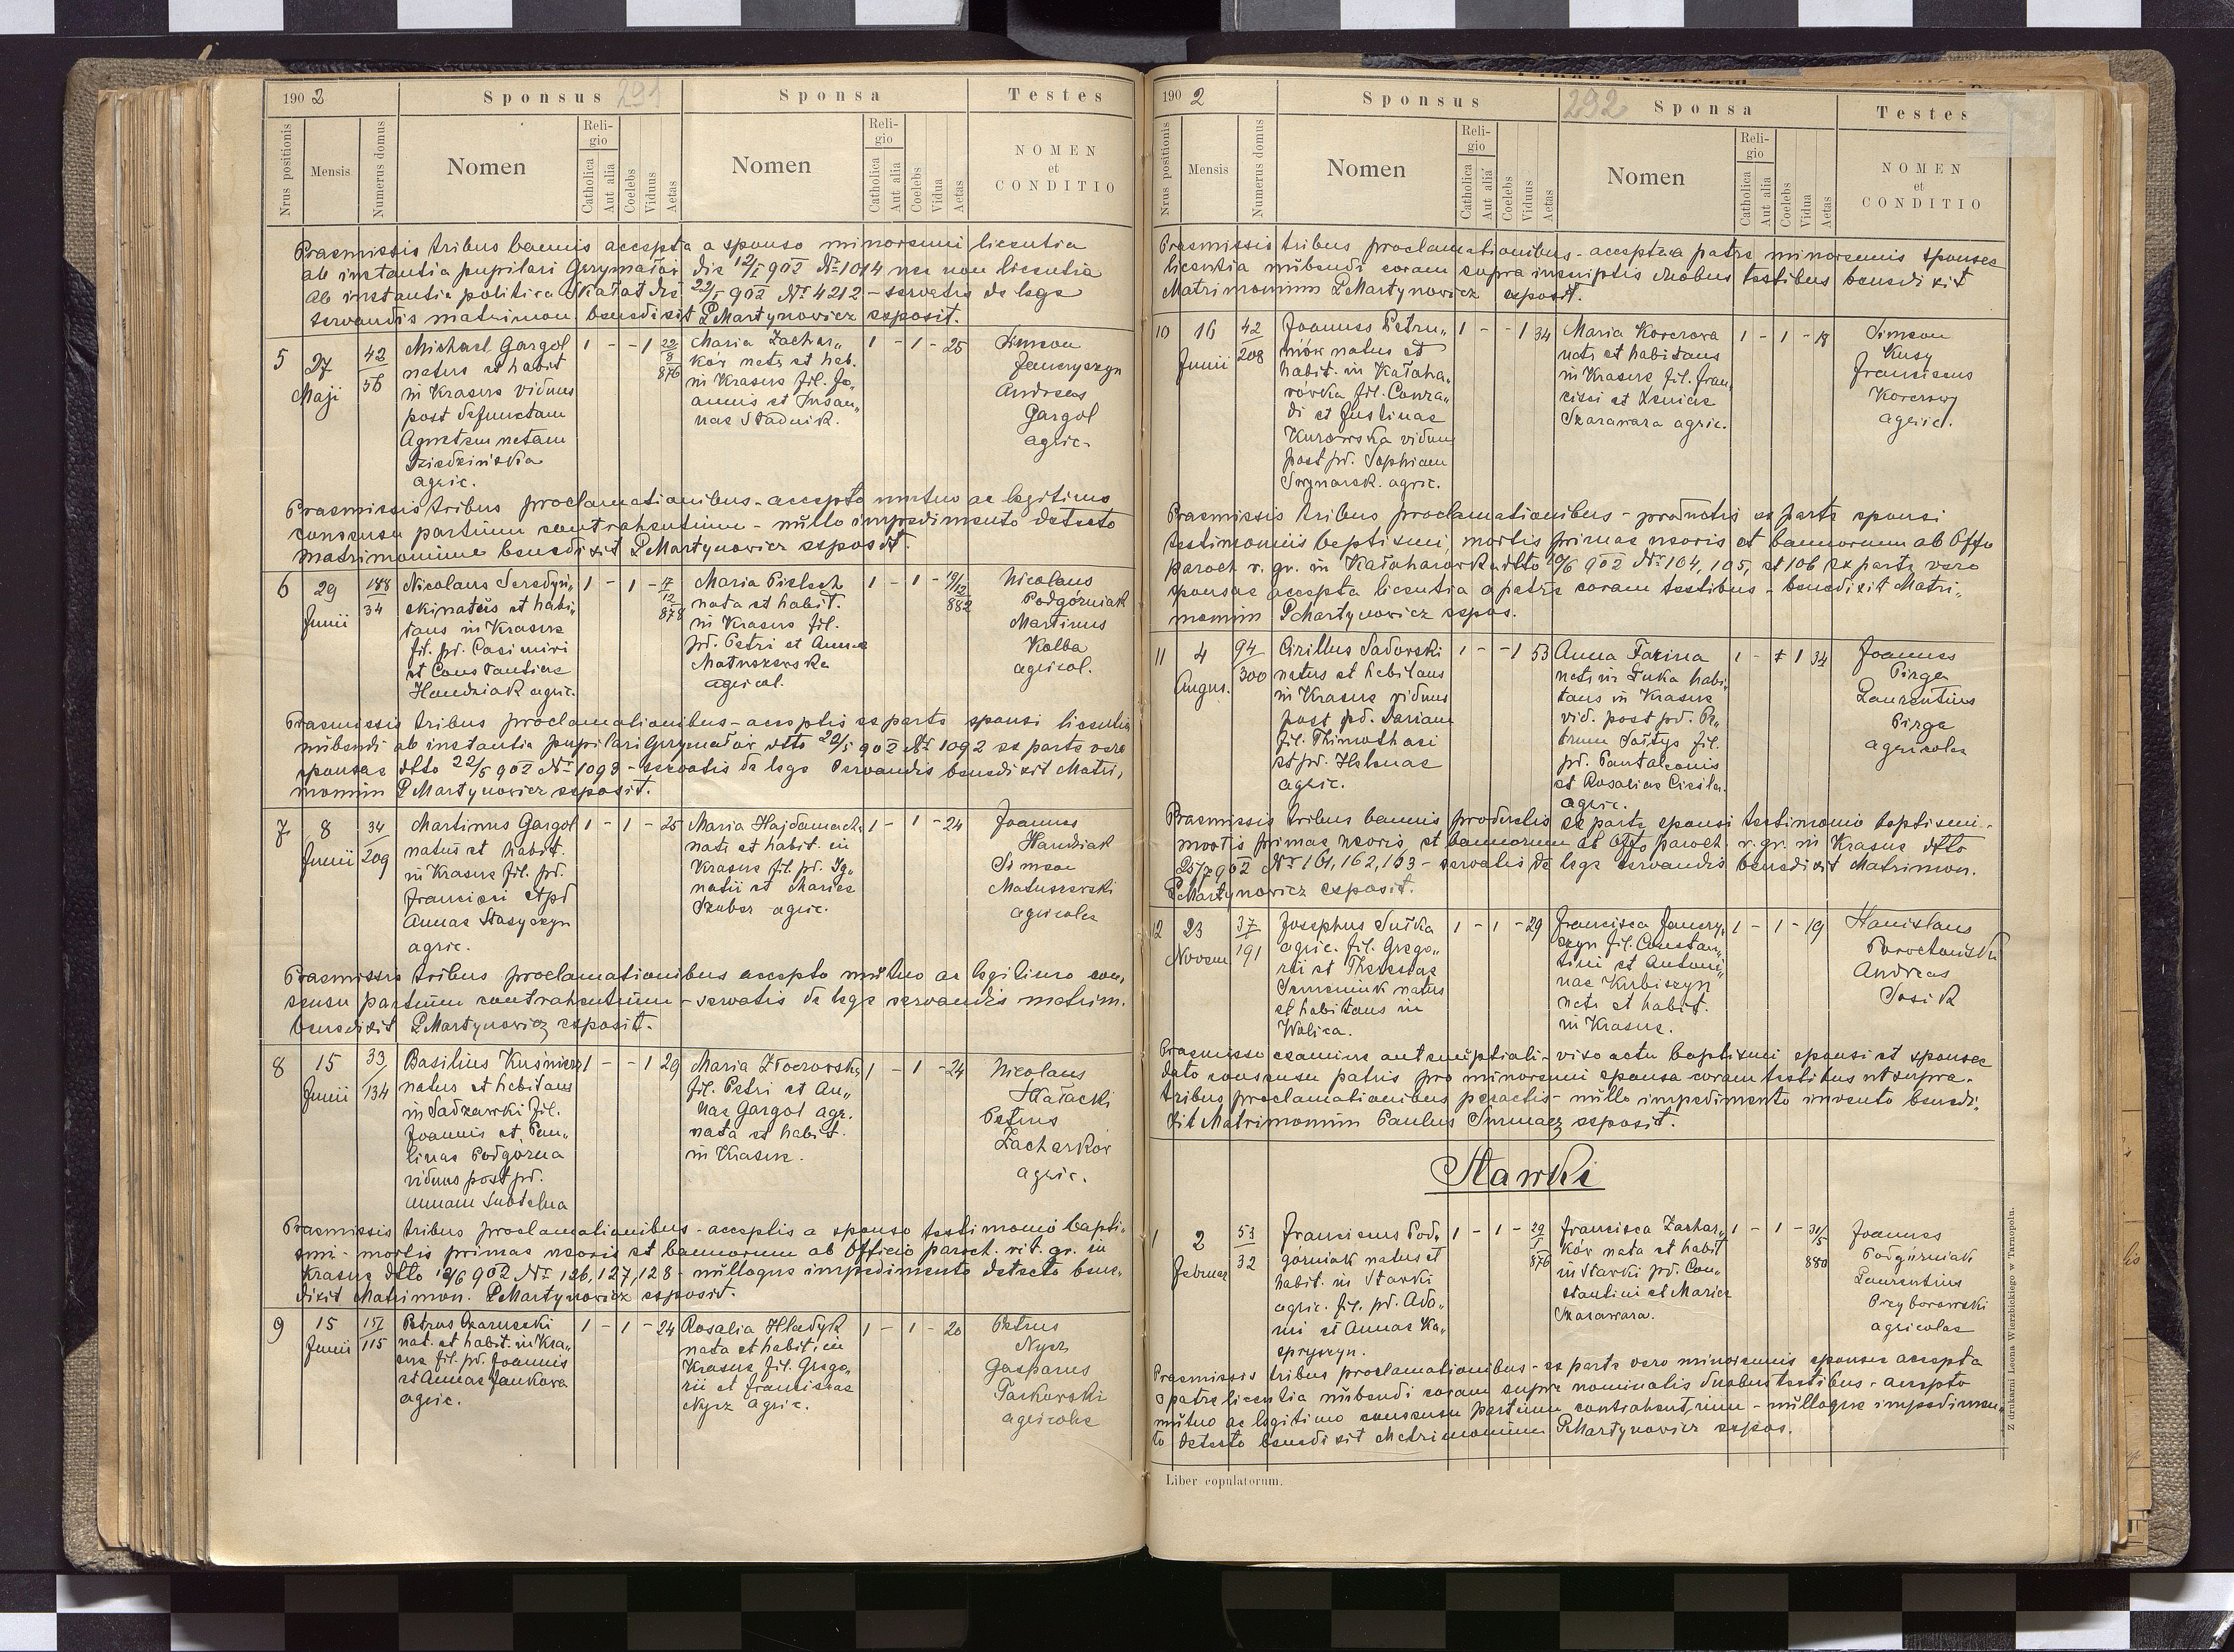 1902 Sponsus 291 Sponsa Testes
Nrus positionis Mensis Numerus domus Nomen Religio Catholica Aut alia Coelebs Viduus Aetas Nomen Religio Catholica Aut alia Coelebs Vidua Aetas NOMEN et CONDITIO
Praemissis tribus bannis accepta a sponso minorenni licentia
ab instantia pupilari Grzymałów die 12/5 902 Nr 1014 nec non licentia
ab instantia politica Skałat die 22/5 902 Nr 4212 - servatis de lege
servandis matrimon. benedixit PMartynowicz exposit.
5
27
Maji
42
56
Michael Gargol
natus et habit
in Krasne viduus
post defunctam
Agnetem natam
Dziedzińska
agric.
1 - - 1
22
8
876
Maria Zachar„
ków nata et hab.
in Krasne fil. Jo„
annis et Susan„
nae Stadnik.
1 - 1 - 25
Simeon
Jancryszyn
Andreas
Gargol
agric.
Praemissis tribus proclamationibus - accepto mutuo ac legitimo
consensu partium contrahentium - nullo impedimento detecto
matrimonium benedixit PMartynowicz exposit.
6
29
Junii
188
34
Nicolaus Seredyń„
ski natus et habi„
tans in Krasne
fil. pd. Casimiri
et Constantiae
Handziak agric.
1 - 1 -
17
12
878
Maria Pielech
nata et habit.
in Krasne fil.
pd. Petri et Annae
Matuszewska
agricol.
1 - 1 -
19/12
882
Nicolaus
Podgórniak
Martinus
Kolba
agricol.
Praemissis tribus proclamationibus - acceptis ex parte sponsi licentia
nubendi ab instantia pupilari Grzymałów dtto 22/5 902 Nr 1092 ex parte vero
sponsae dtto 22/5 902 Nr 1093 - servatis de lege servandis benedixit Matri„
monium PMartynowicz exposit.
7
8
Junii
34
209
Martinus Gargol
natus et habit.
in Krasne fil. pd.
Francisci et pd
Annae Stasyszyn
agric.
1 - 1 - 25
Maria Hajdamacha
nata et habit. in
Krasne fil. pd. Ig„
natii et Mariae
Szuber agric.
1 - 1 - 24
Joannes
Handziak
Simeon
Matuszewski
agricolae
Praemissis tribus proclamationibus accepto mutuo ac legitimo con„
sensu partium contrahentium - servatis de lege servandis matrim.
benedixit PMartynowicz exposit.
8
15
Junii
33
134
Basilius Kuśnierz
natus et habitans
in Sadzawki fil.
Joannis et Pau„
linae Podgórna
viduus post pd.
Annam Subtelna
1 - - 1 29
Maria Złoczowska
fil. Petri et An„
nae Gargol agr.
nata et habit.
in Krasne.
1 - 1 - 24
Nicolaus
Hałacki
Petrus
Zacharków
agric.
Praemissis tribus proclamationibus - acceptis a sponso testimonio bapti„
smi - mortis primae uxoris et bannorum ab Officio paroch. rit. gr. in
Krasne dtto 12/6 902 Nr 126, 127, 128 - nulloque impedimento detecto bene„
dixit Matrimon. PMartynowicz exposit.
9
15
Junii
157
115
Petrus Czarnecki
nat. et habit. in Kra„
sne fil. pd. Joannis
et Annae Jankowa
agric.
1 - 1 - 24
Rosalia Hladyk
nata et habit. in
Krasne fil. Grego„
rii et Franciscae
Nycz agric.
1 - 1 - 20
Petrus
Nycz
Gasparus
Paskowski
agricolae
1902 Sponsus 292 Sponsa Testes
Nrus positionis Mensis Numerus domus Nomen Religio Catholica Aut alia Coelebs Viduus Aetas Nomen Religio Catholica Aut alia Coelebs Vidua Aetas NOMEN et CONDITIO
Praemissis tribus proclamationibus - accepta a patre minorennis sponsae
licentia nubendi coram supra inscriptis duobus testibus benedixit
Matrimonium PMartynowicz exposit.
10
16
Junii
42
208
Joannes Petru„
niów natus et
habit. in Kałaha„
rówka fil. Conra„
di et Justinae
Kurowska viduus
post pd. Sophiam
agric.
1 - - 1 34
Maria Korczowa
nata et habitans
in Krasne fil. Fran„
cisci et Xeniae
Szarawara agric.
1 - 1 - 18
Simeon
Kusy
Franciscus
Korczowy
agricol.
Praemissis tribus proclamationibus - productis ex parte sponsi
testimoniis baptismi, mortis primae uxoris et bannorum ab Offo
paroch r. gr. in Kałaharówka dtto 10/6 902 Nr 104, 105, et 106 ex parte vero
sponsae accepta licentia a patre coram testibus - benedixit Matri„
monium PMartynowicz expos.
11
4
Augus.
94
300
Cirillus Sadowski
natus et habitans
in Krasne viduus
post pd. Dariam
fil. Thimothaei
et pd. Helenae
agric.
1 - - 1 53
Anna Farina
nata in Łuka habi„
tans in Krasne
vid. post pd. Pe„
trum Sołtys fil.
pd. Pantaleonis
et Rosaliae Cieśla
agric.
1 - 1 34
Joannes
Pirga
Laurentius
Pirga
agricolae
Praemissis tribus bannis productis ex parte sponsi testimonio baptismi -
mortis primae uxoris, et bannorum ab Offo paroch. r. gr. in Krasne dtto
25/7 902 Nr 161, 162, 163 - servatis de lege servandis benedixit Matrimon.
PMartynowicz exposit.
12
23
Novem
37
191
Josephus Suśka
agric. fil. Grego„
rii et Theresiae
Semeniuk natus
et habitans in
Wolica.
1 - 1 - 29
Francisca Jancry„
szyn fil. Constan„
tini et Antoni„
nae Kubiszyn
nata et habit.
in Krasne.
1 - 1 - 19
Stanislaus
Andreas
Sosik
Praemisso examine antenuptiali - viso actu baptismi sponsi et sponsae
dato consensu patris pro minorenni sponsa coram testibus ut supra -
tribus proclamationibus peractis - nullo impedimento invento benedi„
xit Matrimonium Paulus Surmacz exposit.
Stawki
1
2
Februar
53
32
Franciscus Pod„
górniak natus et
habit. in Stawki
agric. fil. pd. Ada„
mi et Annae Ka„
spryszyn.
1 - 1 -
29
1
876
Francisca Zachar„
ków nata et habit
in Stawki pd. Con„
stantini et Mariae
Szarawara.
1 - 1 -
31/5
880
Joannes
Podgórniak
Laurentius
Przyborowski
agricolae
Praemissis tribus proclamationibus - ex parte vero minorennis sponsae accepta
a patre licentia nubendi coram supra nominatis duobus testibus - accepto
mutuo ac legitimo consensu partium contrahentium - nulloque impedimen„
to detecto benedixit Matrimonium PMartynowicz expos.
Liber copulatorum.
Z drukarni Leona Wierzbickiego w Tarnopolu.